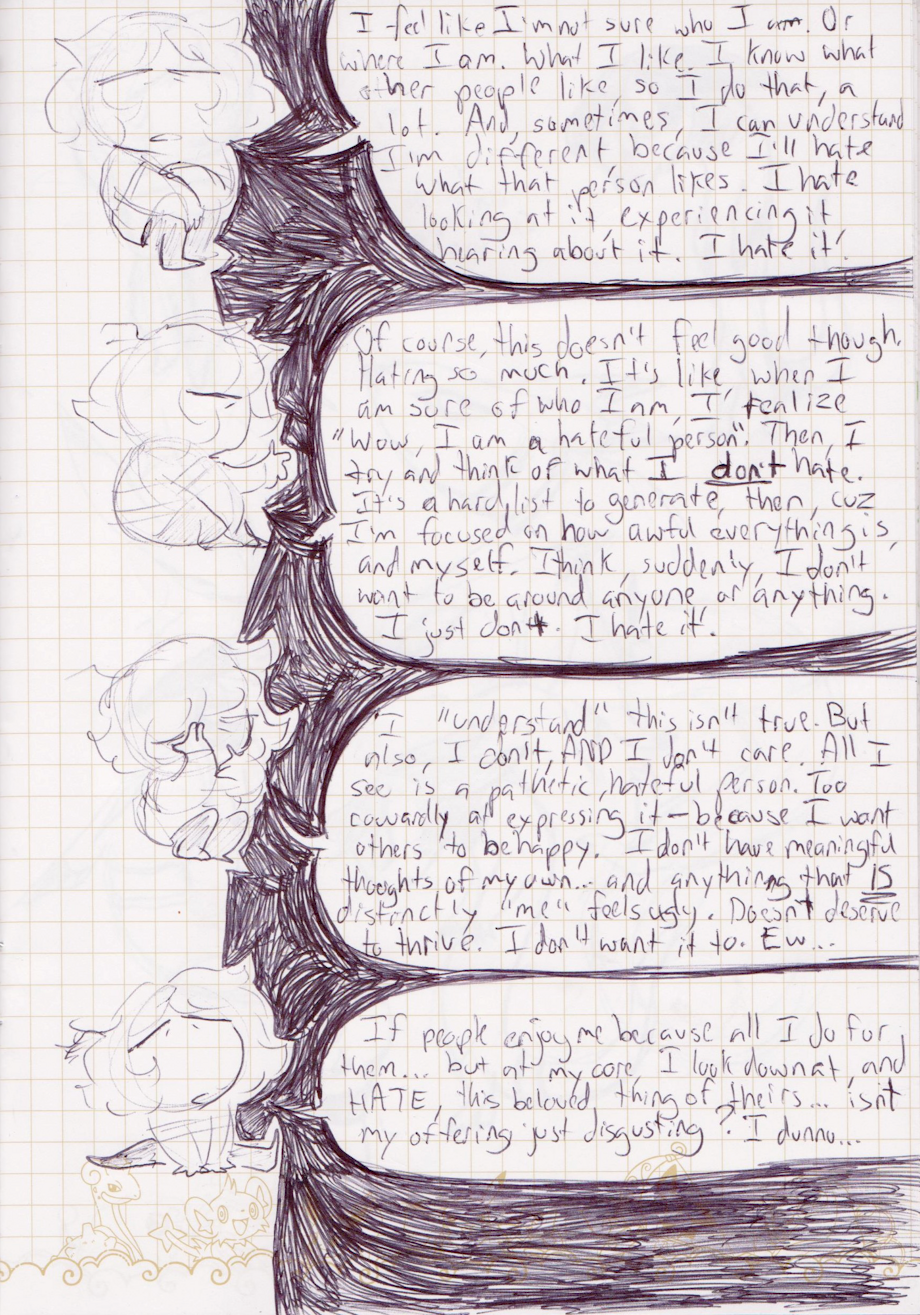 I feel like I'm not sure who I am. Or
where I am. What I like. I know what
other people like, so I do that, a
lot. And, sometimes, I can understand
I'm different because I'll hate
what that person likes. I hate
looking at it, experiencing it
hearing about it. I hate it.
Of course, this doesn't feel good though.
Hating so much. It's like when I
am sure of who I am, I realize
"Wow, I am a hateful person". Then, I
try and think of what I don't hate.
It's a hard list to generate, then, cuz
I'm focused on how awful everything is,
and myself. I think, suddenly, I don't
want to be around anyone or anything.
I just don't. I hate it.
I "understand" this isn't true. But
also, I don't, AND I don't care. All I
see is a pathetic, hateful person. Too
cowardly at expressing it - because I want
others to be happy. I don't have meaningful
thoughts of my own... and anything that IS
distinctly "me" feels ugly. Doesn't deserve
to thrive. I don't want it to. Ew...
If people enjoy me because all I do for
them... but at my core, I look down at, and
HATE, this beloved thing of theirs... isnt
my offering just disgusting? I dunno...